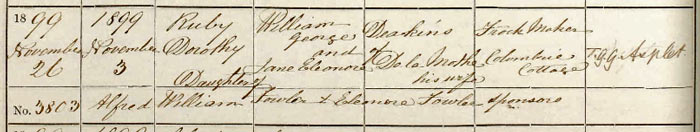 1899 1899 Ruby William Deakins Frock Maker
November November Dorothy George
and of De la Mothe Columbia T. G. G.
26 3 Daughter of Jane Eleonore his wife Cottage
No. 3803 Alfred William Fowler & Eleonore Fowler Sponsors